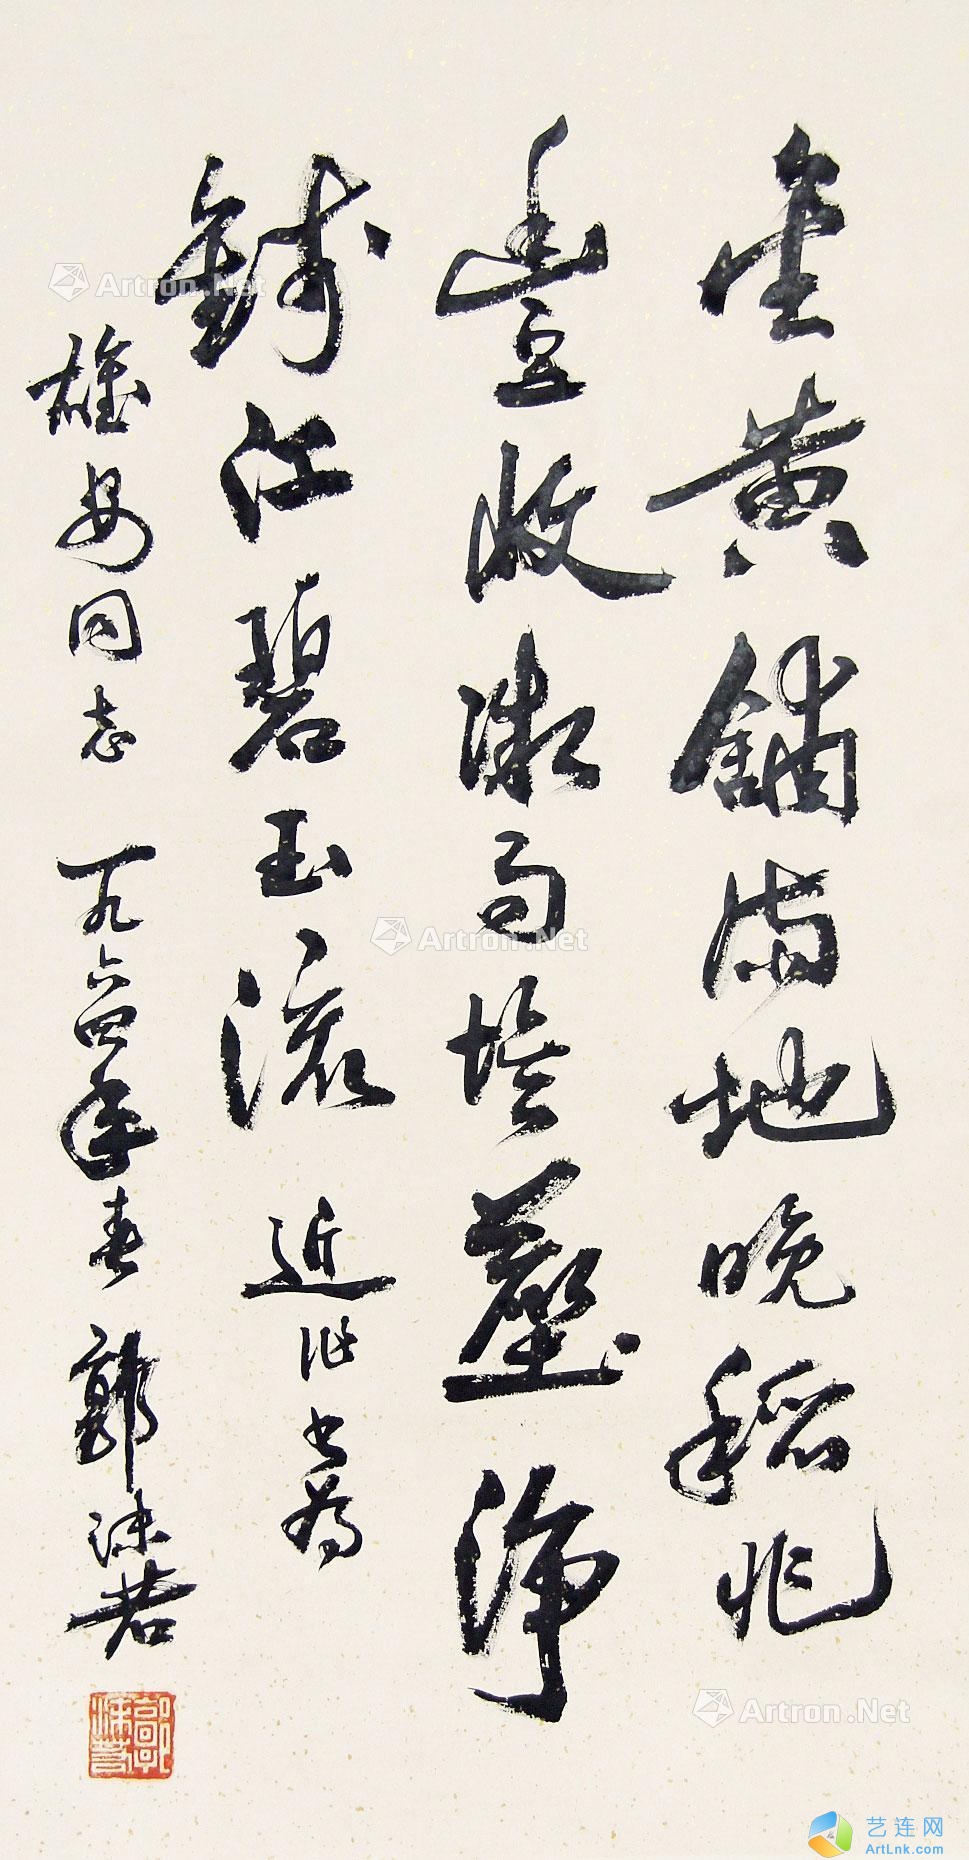 金黄鋪满地晚稻兆
豐收微雨埃塵淨
錢江碧玉流 近作書爲
雄安同志 一九六四年春 郭沫若
郭沫若
Artron.Net
Artron.Net
Artron.Net
艺连网
ArtLnk.com